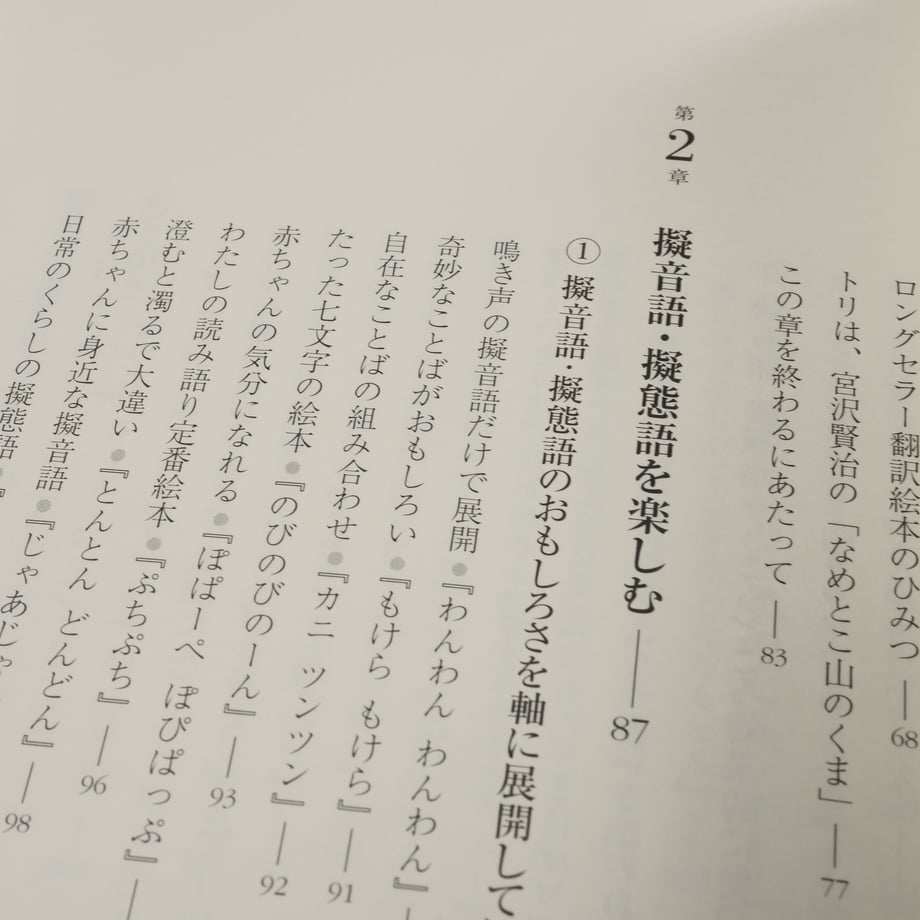 ロングセラー翻訳絵本のひみつ ── 68
トリは、宮沢賢治の「なめとこ山のくま」 ── 77
この章を終わるにあたって ── 83
第2章 擬音語・擬態語を楽しむ ── 87
① 擬音語・擬態語のおもしろさを軸に展開して
鳴き声の擬音語だけで展開 ●『わんわん わんわん』 ──
奇妙なことばがおもしろい ●『もけら もけら』 ── 91
自在なことばの組み合わせ ●『カニ ツンツン』 ── 92
たった七文字の絵本 ●『のびのびのーん』 ── 93
赤ちゃんの気分になれる ●『ぽぱーぺ ぽぴぱっぷ』 ──
わたしの読み語り定番絵本 ●『ぷちぷち』 ── 96
澄むと濁るで大違い ●『とんとん どんどん』 ── 98
赤ちゃんに身近な擬音語 ●『じゃあじゃ
日常のくらしの擬態語 ●『